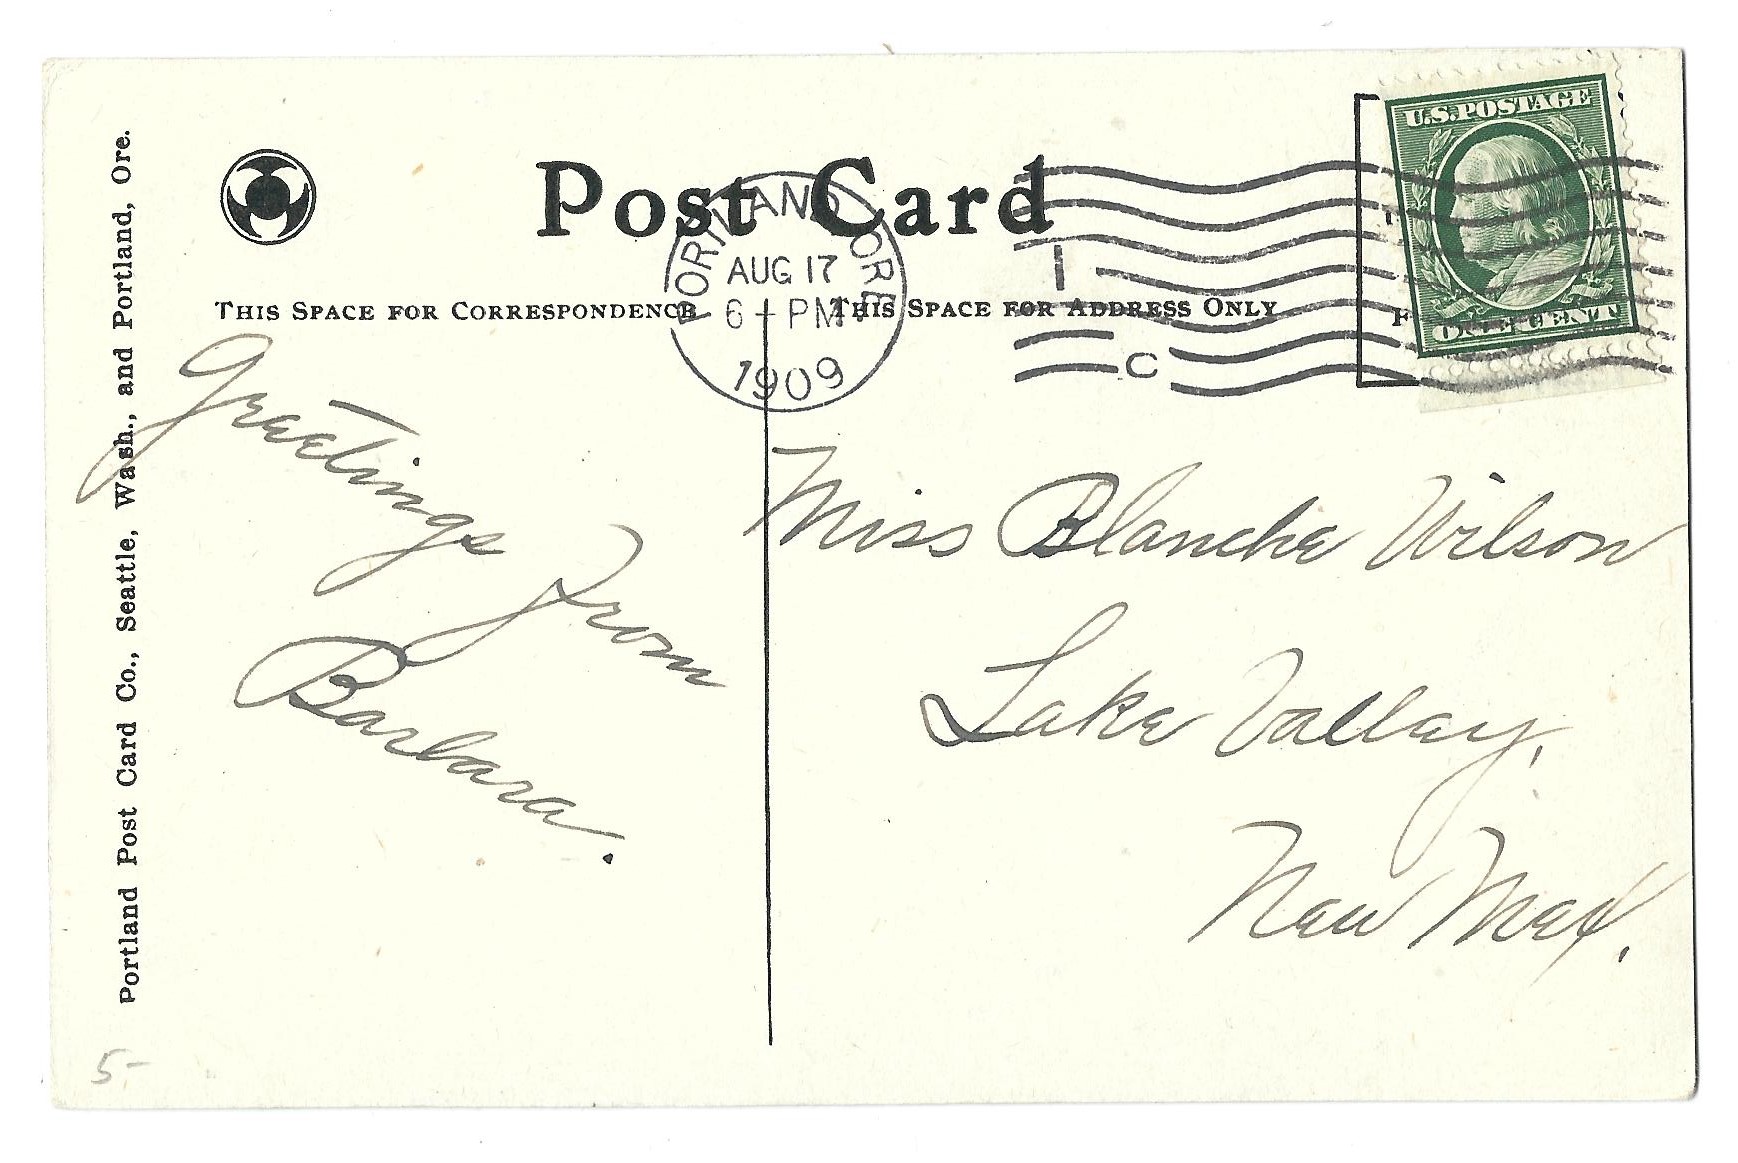 Post Card
U.S. POSTAGE
ONE CENT
PORTLAND, ORE.
AUG 17
6 - PM
1909
I
C
THIS SPACE FOR CORRESPONDENCE
THIS SPACE FOR ADDRESS ONLY
Greetings
from
Barbara.
Miss Blanche Wilson
Lake Valley,
New Mex.
Portland Post Card Co., Seattle, Wash., and Portland, Ore.
5-